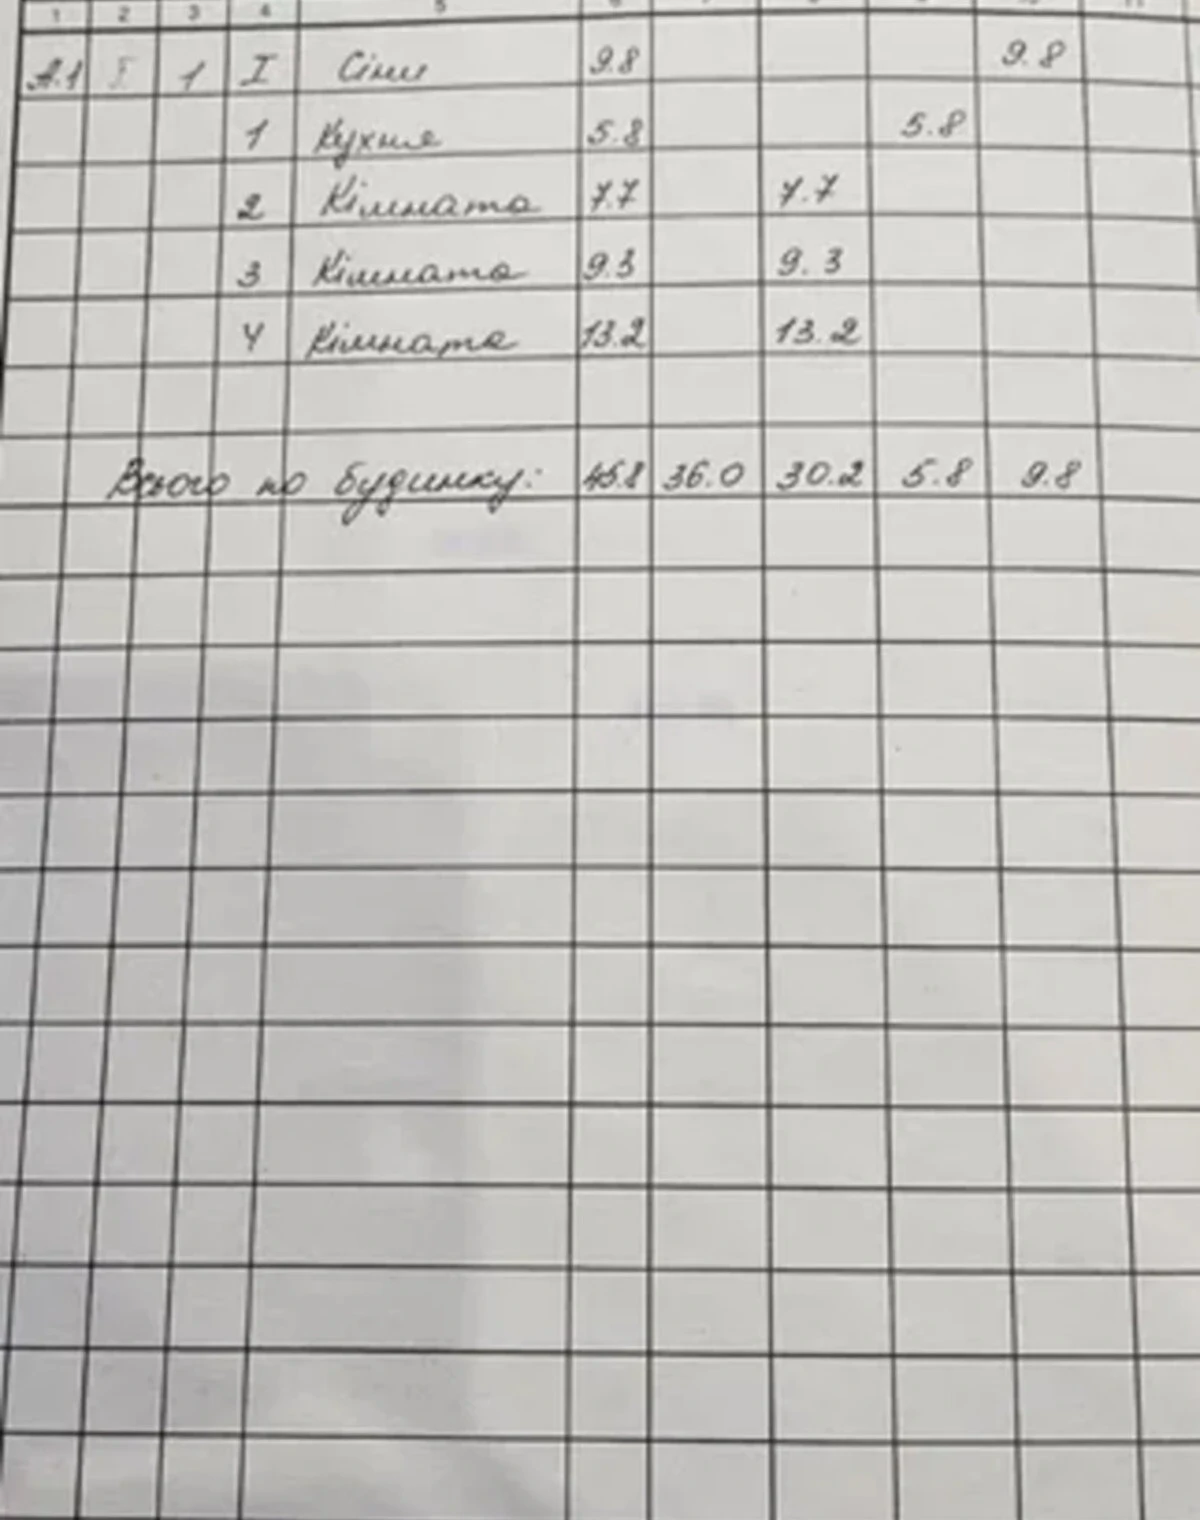 1 2 3 4 5 6 8 10 11
А.1 I 1 I Сіни 9.8 9.8
1 Кухня 5.8 5.8
2 Кімната 7.7 7.7
3 Кімната 9.3 9.3
4 Кімната 13.2 13.2
Всього по будинку: 45.8 36.0 30.2 5.8 9.8